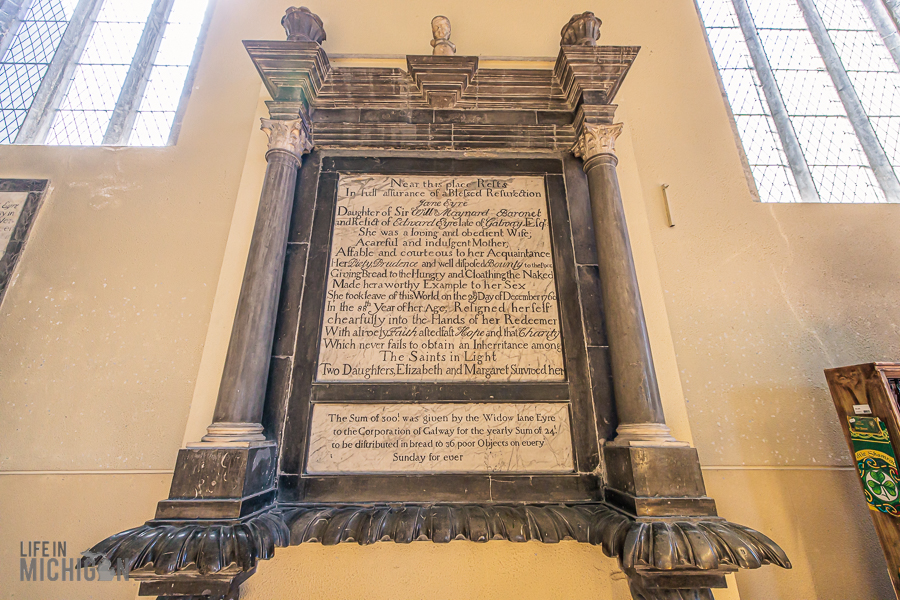 Near this place Rests
In full assurance of a Blessed Resurection
Jane Eyre
Daughter of Sir Will Maynard Baronet
and Relict of Edward Eyre late of Galway Esqr
She was a loving and obedient Wife;
A careful and indulgent Mother,
Affable and courteous to her Acquaintance
Her Piety, Prudence and well disposed Bounty to the Poor
Giving Bread to the Hungry and Cloathing the Naked
Made her a worthy Example to her Sex
She took leave of this World on the 29 Day of December 1760
In the 88th Year of her Age, Resigned her self
chearfully into the Hands of her Redeemer
With a lively Faith a stedfast Hope and that Charity
Which never fails to obtain an Inherritance among
The Saints in Light
Two Daughters, Elizabeth and Margaret Survived her
The Sum of 300l was given by the Widow Jane Eyre
to the Corporation of Galway for the yearly Sum of 24l
to be distributed in bread to 36 poor Objects on every
Sunday for ever
LIFE IN
MICHIGAN